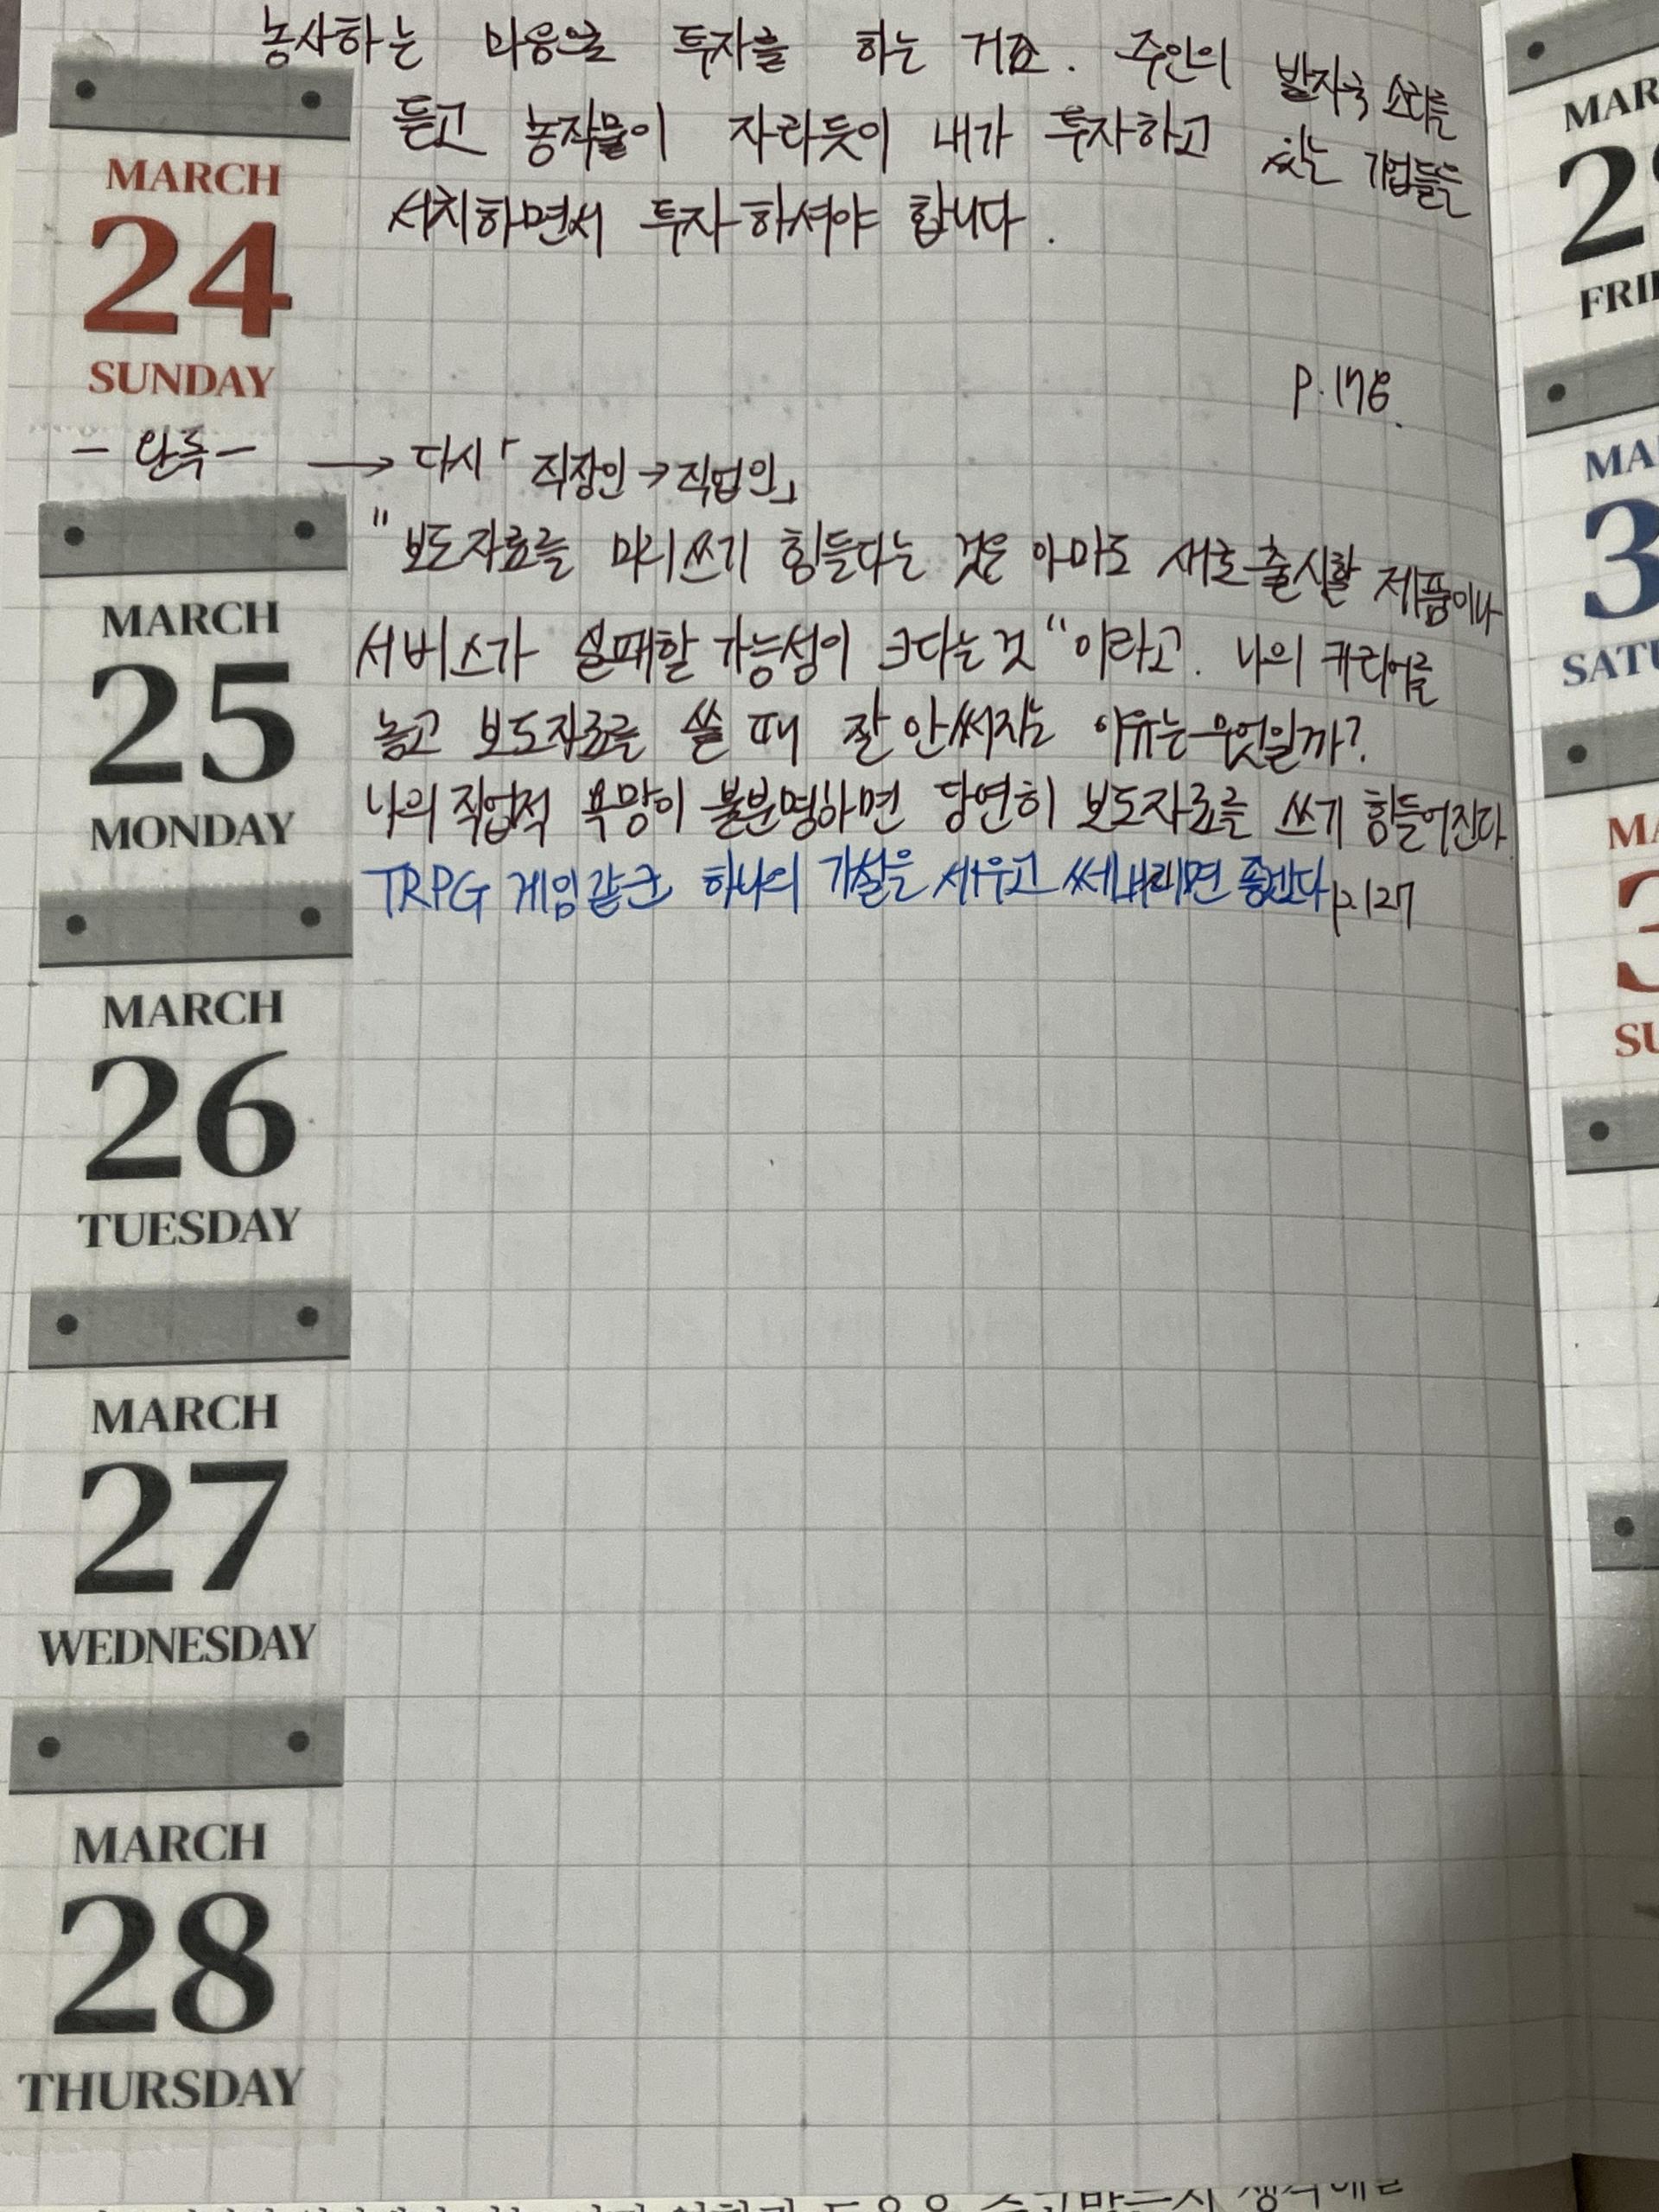 농사하는 마음으로 투자를 하는 거죠. 주인의 발자국 소리를
듣고 농작물이 자라듯이 내가 투자하고 있는 기업들을
서치하면서 투자하셔야 합니다.
MARCH
24
SUNDAY
p.178.
- 완독 -
→ 다시「직장인→직업인」
"보도자료를 미리쓰기 힘들다는 것은 아마도 새로 출시할 제품이나
서비스가 실패할 가능성이 크다는것"이라고. 나의 커리어를
놓고 보도자료를 쓸 때 잘 안써지는 이유는 무엇일까?
나의 직업적 욕망이 불분명하면 당연히 보도자료를 쓰기 힘들어진다
TRPG 게임같 하나의 가설을 세우고 써내리면 좋겠다 p.127
MARCH
25
MONDAY
MARCH
26
TUESDAY
MARCH
27
WEDNESDAY
MARCH
28
THURSDAY